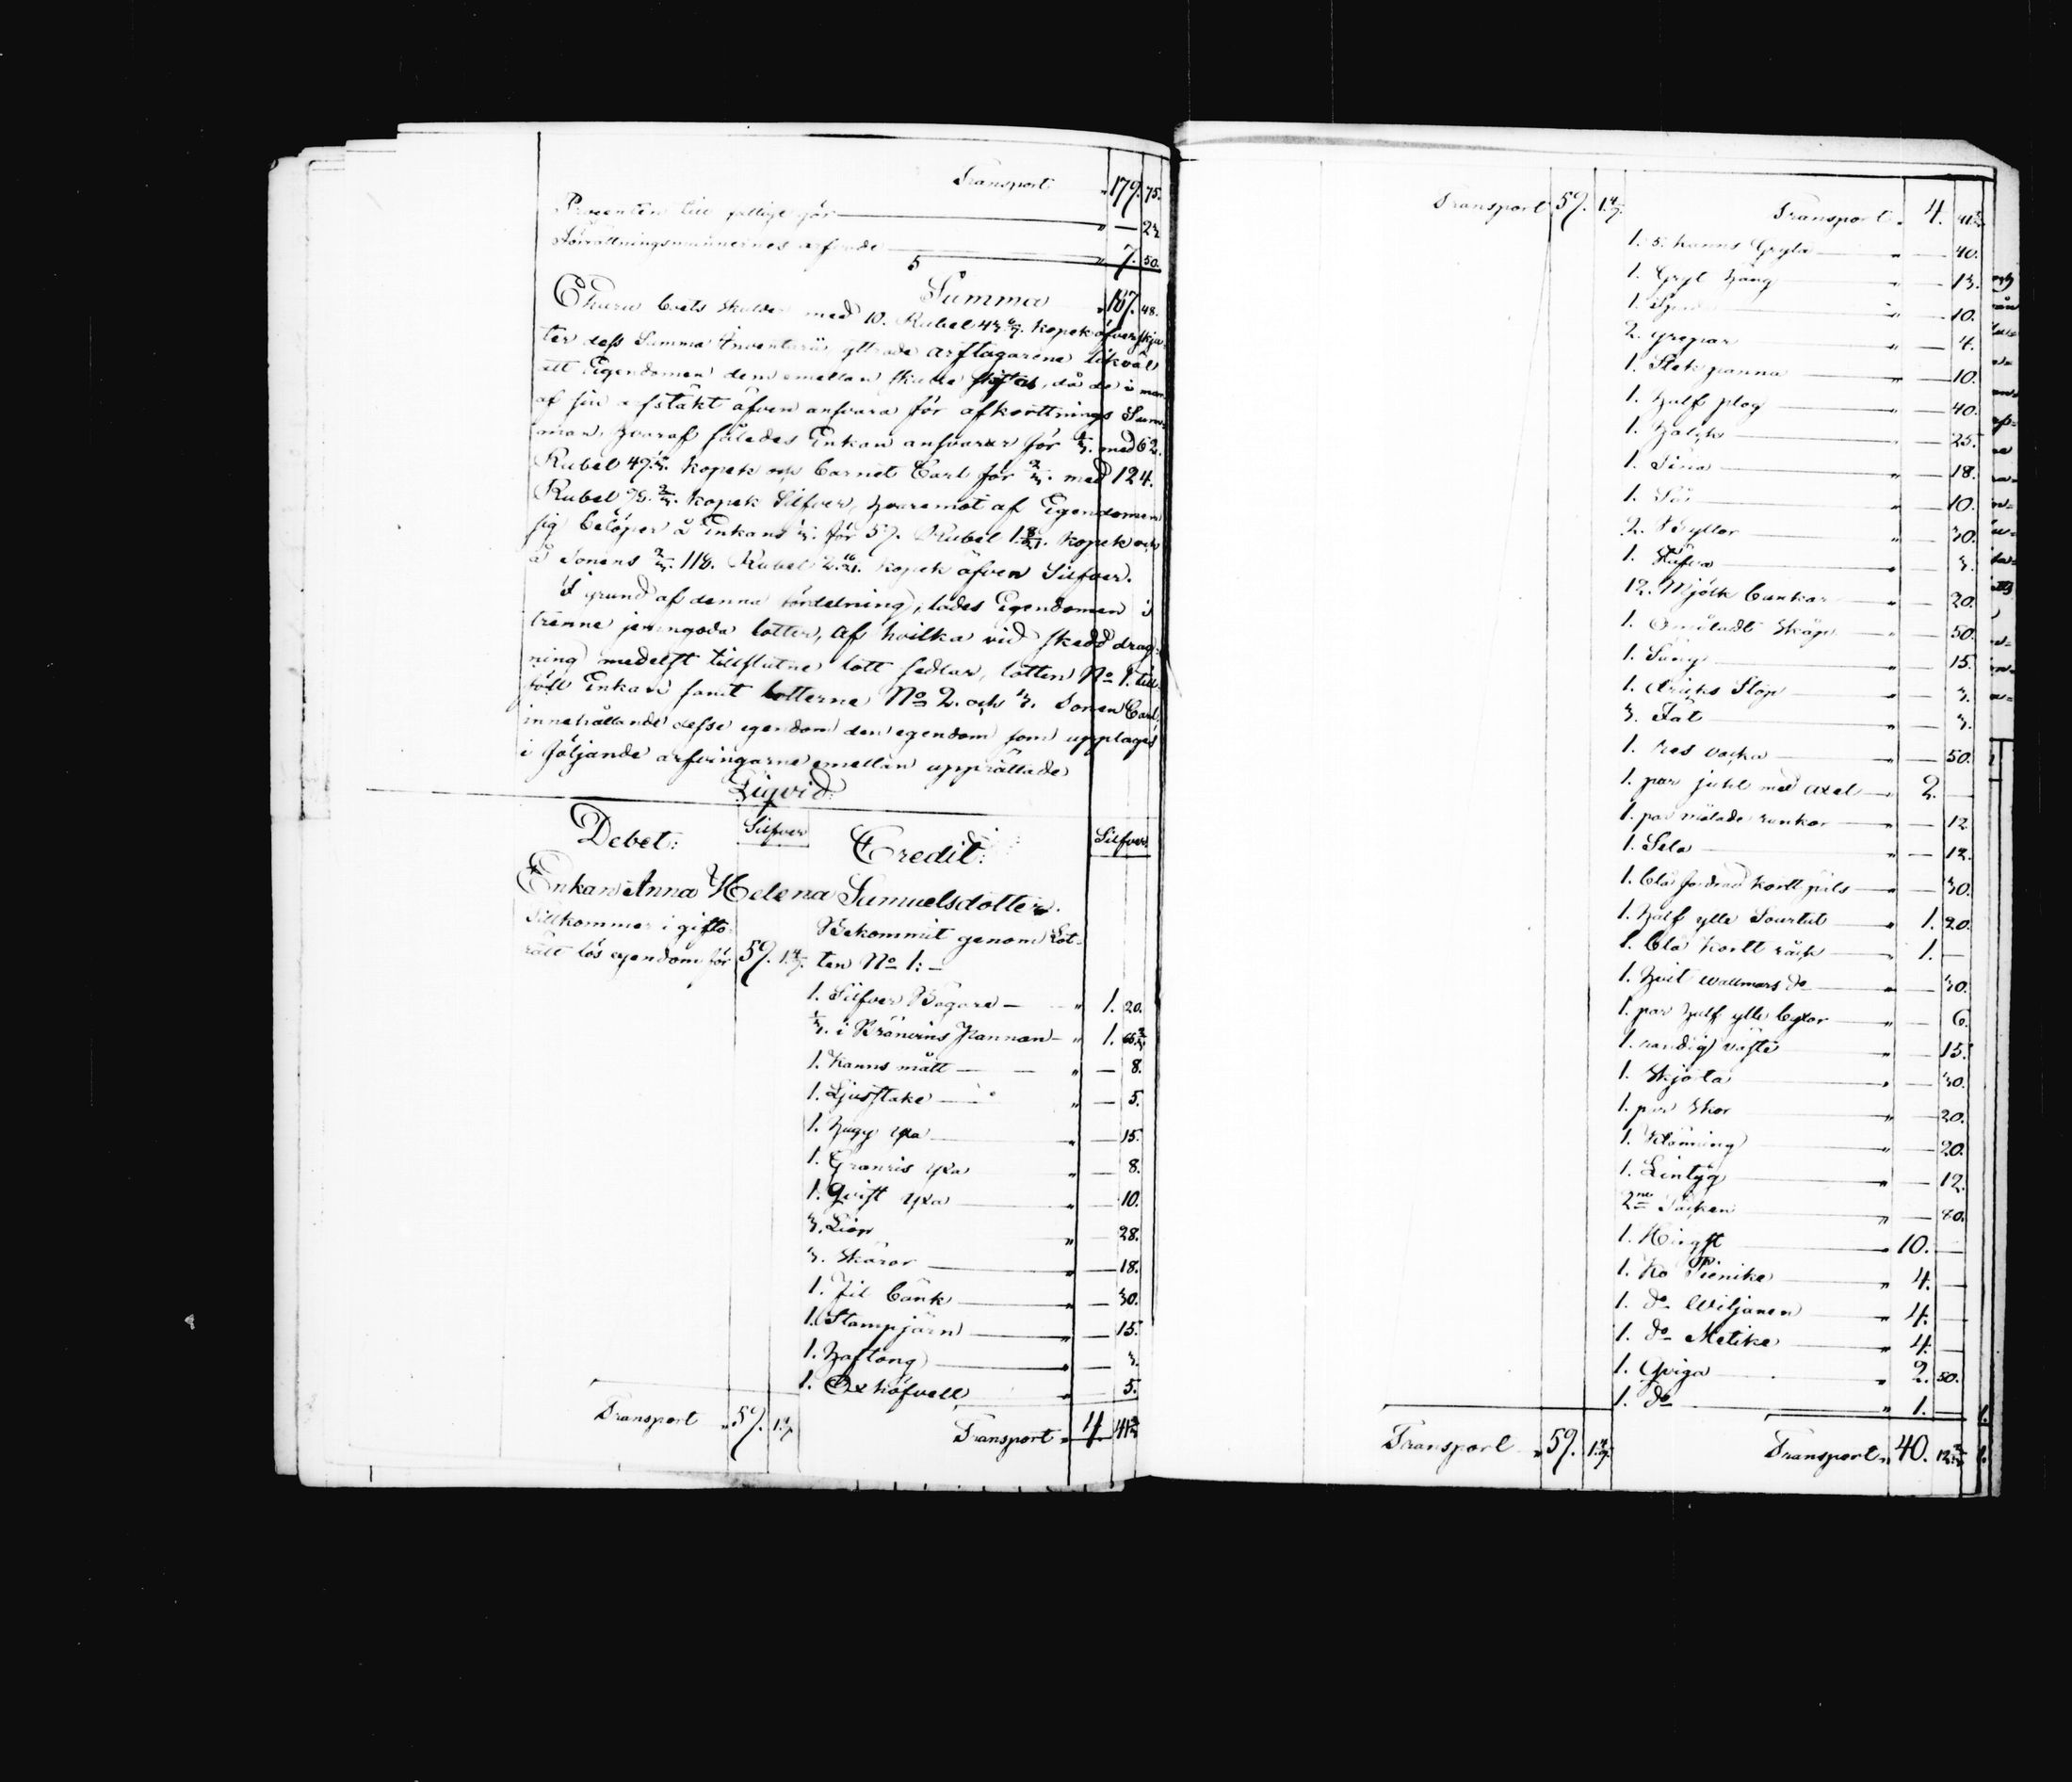 Transport " 179. 75.
Procenten till fattige gör " — 23
Förrättningsmännernes arfvode " 7. 50.
Summa " 187. 48.
Ehuru boets skulder med 10. Rubel 43 6/7. kopek öfverskju-
ter dess Summa Inventarii yttrade arftagarene likväl
att Egendomen dem emellan skulle skiftas, då de i mon
af sin arfstäkt äfven ansvara för afkorttnings Sum-
man, hvaraf således Enkan ansvarar för 1/3. med 62.
Rubel 49 1/3. kopek och barnet Carl för 2/3. med 124.
Rubel 98 2/3. kopek Silfver, hvaremot af Egendomen
sig belöper å Enkans 1/3. för 59. Rubel 1 8/21. kopek och
å Sonens 2/3. 118. Rubel 2 16/21. kopek äfven Silfver.
I grund af denna fördelning, lades Egendomen i
trenne jemngoda lotter, af hvilka vid skedd drag-
ning medelst tillslutne lott sedlar, lotten No 1. till-
föll Enkan samt lotterne No 2. och 3. Sonen Carl,
innehållande desse egendom den egendom som upptages
i följande arfvingarne emellan upprättade
Liqvid:
Debet: Silfver Credit: Silfver
Enkan Anna Helena Samuelsdotter.
Tillkommer i gifto-
rätt lös egendom för 59. 1 4/7.
Bekommit genom Lot-
ten No 1: –
1. Silfver Bägare — " 1. 20.
1/3. i Brännvins Pannan — " 1. 66 2/3.
1. Kanns mått — " — 8.
1. Ljusstake — " — 5.
1. Hugg yxa — " — 15.
1. Granris yxa " — 8.
1. Qvist yxa — " — 10.
3. Liar " — 28.
3. Skäror — " — 18.
1. Fil bänk — " — 30.
1. Stampjärn — " — 15.
1. Hoftång — " — 3.
1. Oxhöfvell " 5.
Transport " 59. 1 4/7. Transport " 4. 41 2/3.
Transport 59. 1 4/7. Transport " 4. 41 2/3.
1. 5. kanns Gryta — " — 40.
1. Gryt häng " — 13.
1. " — 10.
2. grepar " — 4.
1. Stek panna " — 10.
1. Half plog " — 40.
1. — " — 25.
1. Tina — " — 18.
1. Så — " — 10.
2. " — 30.
1. " — 3.
12. Mjölk bunkar " — 20.
1. Omåladt skåp " — 50.
1. Säng " — 15.
1. dricks Stop " — 3.
3. Fat " — 3.
1. — " — 50.
1. par hjuhl med axel — " 2. —
1. par målade " — 12.
1. Sela — " — 12.
1. blå fodrad kortt päls — " — 30.
1. Half ylle Sourtut " 1. 20.
1. blå kortt råck " 1. —
1. Hvit wallmars do — " — 30.
1. par half ylle byxor " — 6.
1. randig väste " — 15.
1. Skjorta " — 30.
1. par Skor " — 20.
1. Klänning — " — 20.
1. Lintyg — " — 12.
2ne Säckar — " — 40.
1. Hingst — " 10. —
1. Ko Pienike — " 4. —
1. do Wiljanen — " 4. —
1. do Metike — " 4. —
1. Qviga " 2. 50.
1. do — " 1. —
Transport " 59. 1 4/7. Transport " 40. 12 2/3.